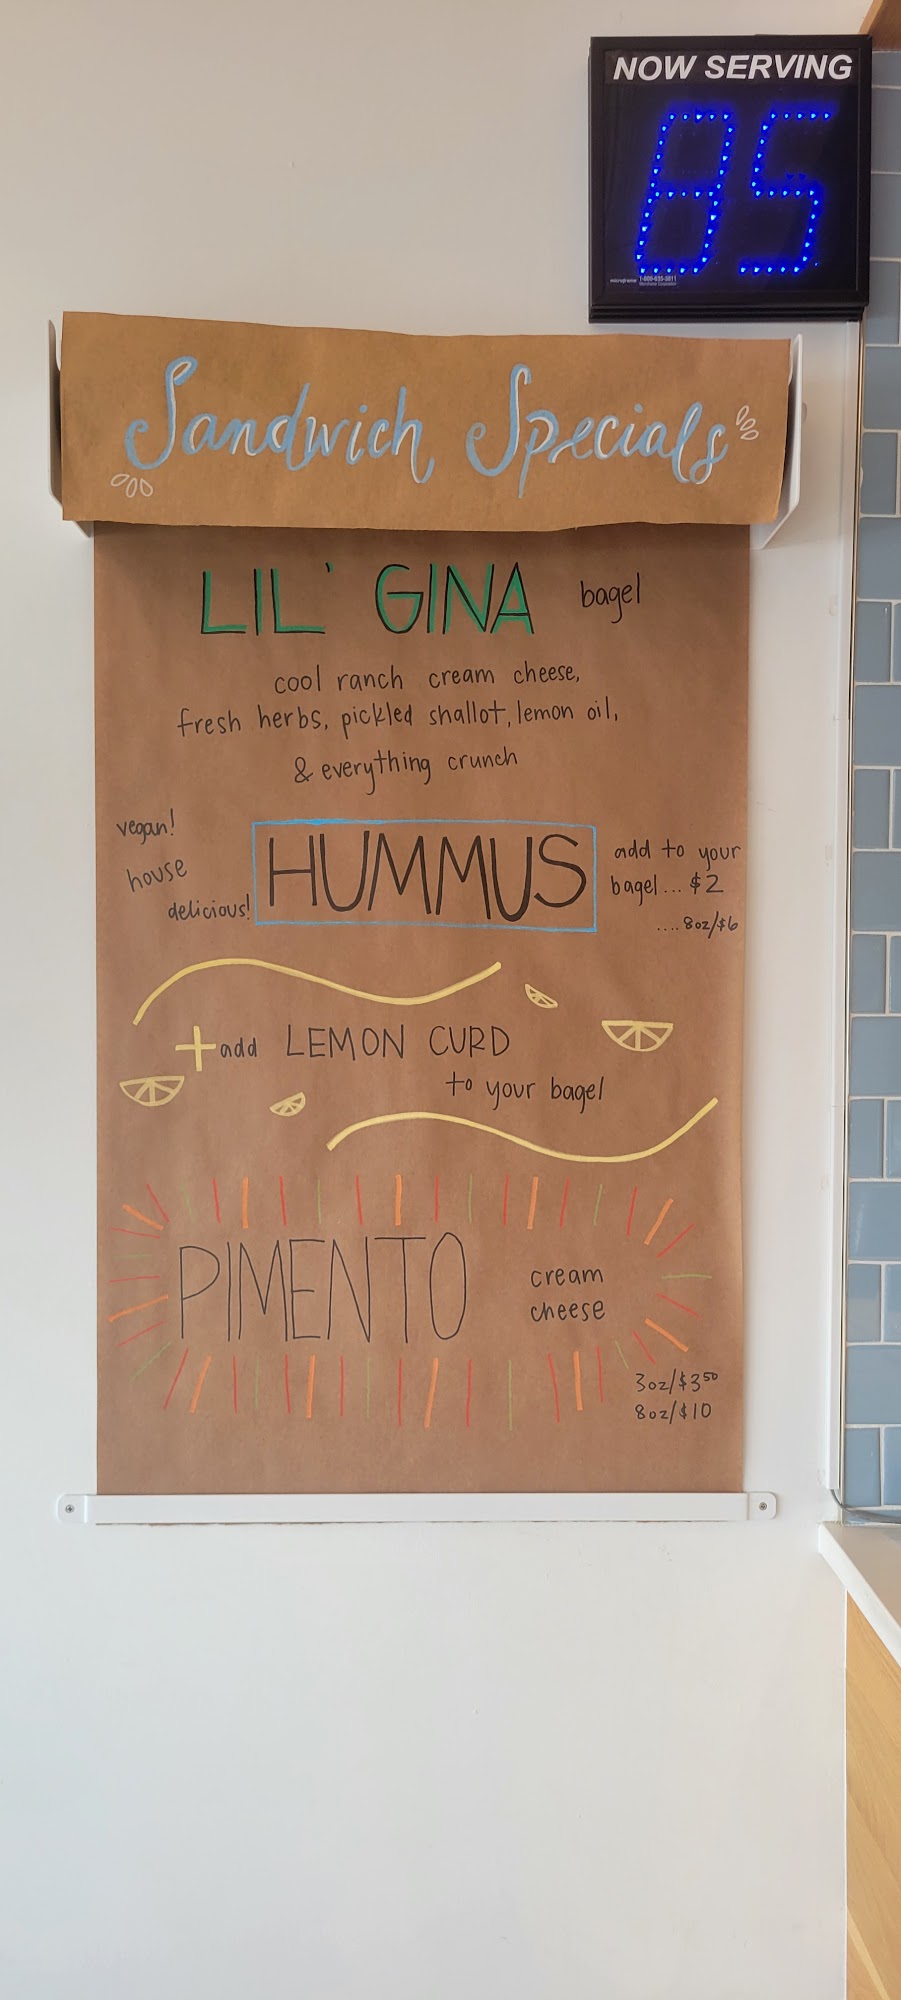 NOW SERVING
85
1-800-635-3811
Sandwich Specials
LIL' GINA bagel
cool ranch cream cheese,
fresh herbs, pickled shallot, lemon oil,
& everything crunch
vegan!
house
delicious!
HUMMUS
add to your
bagel... $2
.... 8oz/$6
+add LEMON CURD
to your bagel
PIMENTO
cream
cheese
3oz/$3⁵⁰
8oz/$10